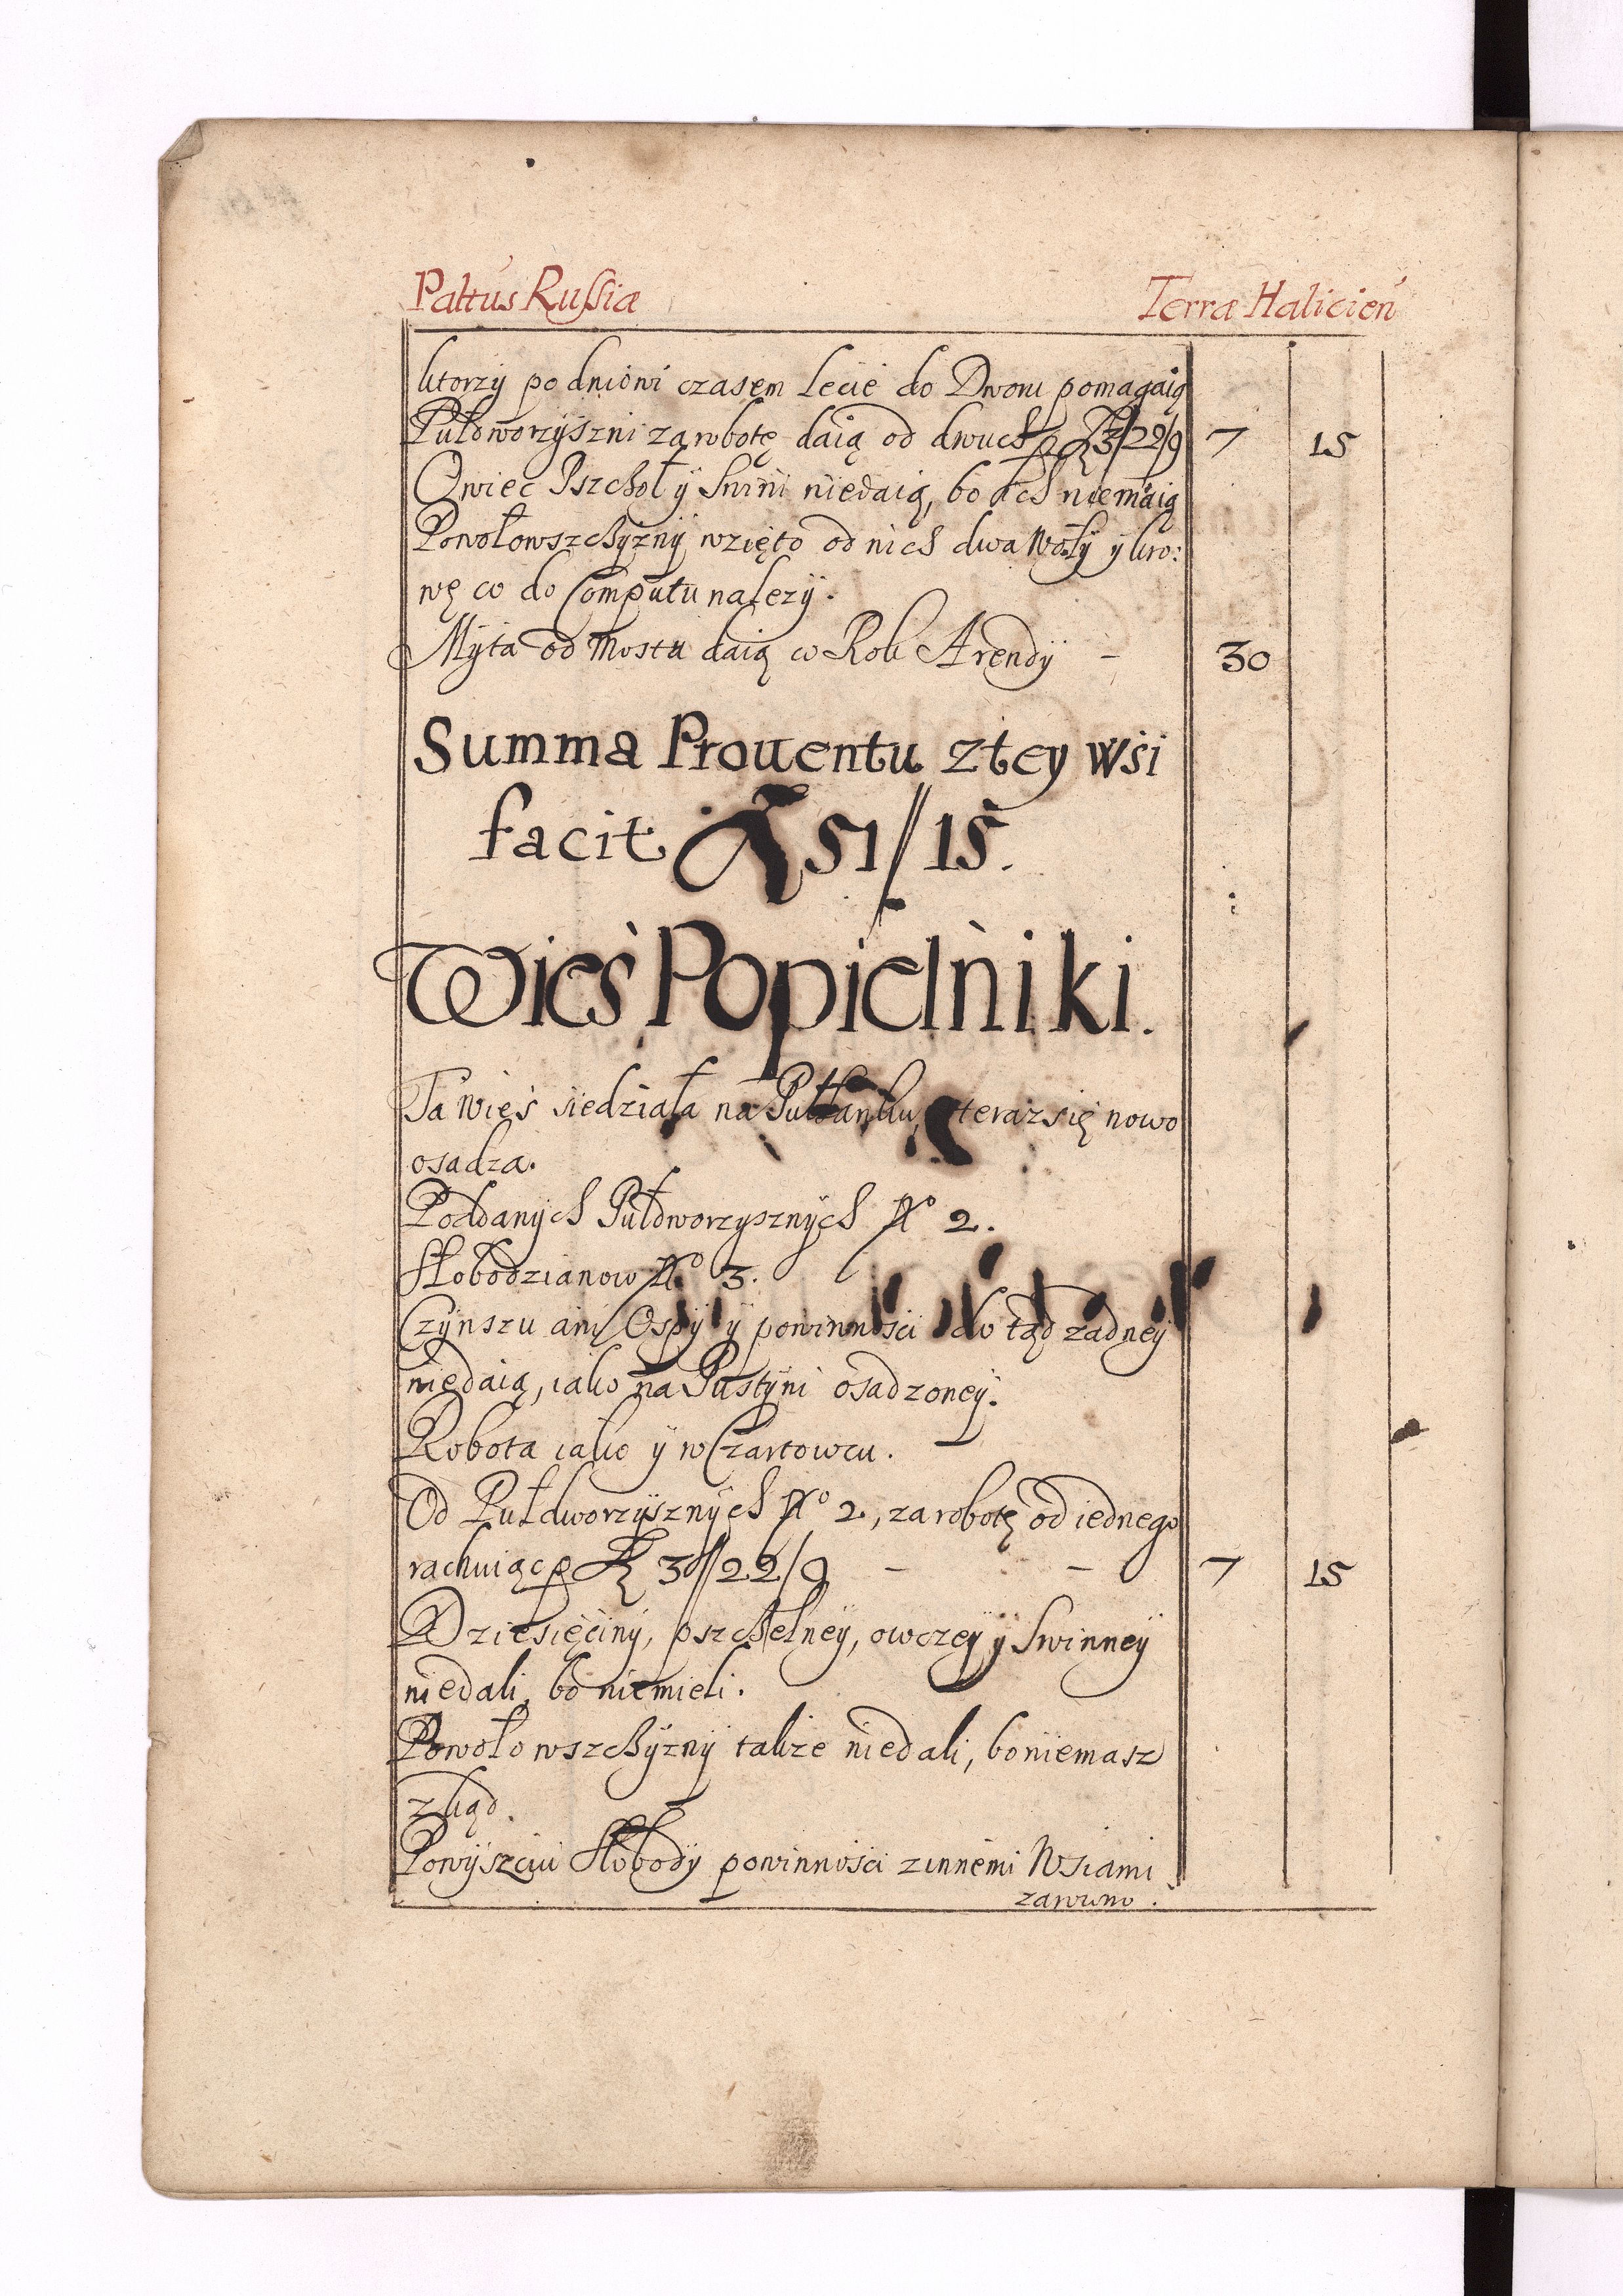 Paltus Russiæ Terræ Halicień
ktorzy po dniowi czasem lecie do Dworu pomagaią
Pułdworzyszni za robotę daią od dwuch p 3/22/9 7 15
Owiec Pszchoł y Swini niedaią, bo ich niemaią
Powołowszchyzny wzięto od nich dwa Woły y kro:
wę co do Computu nalezy.
Myta od Mostu daią w Rok Arendy - 30
Summa Prouentu ztey Wsi
facit 51//15.
Wieś Popielniki.
Ta wieś siedziała na Pułłanku, teraz się nowo
osadza.
Poddanych Pułdworzysznych No 2.
Słobodzianow No 3.
Czynszu ani Ospy y powinnosci do tąd zadney
niedaią, iako na Pustyni osadzoney.
Robota iako y w Czartowcu.
Od Pułdworzysznych No 2, za robotę od iednego
rachuiąc p 3//22/9 - - 7 15
Dziesięciny, pszchelney, owczey y Swinney
niedali, bo niemieli.
Powołowszchyzny takze niedali, bo niemasz
zkąd.
Powyszciu Słobody powinnosci zinnemi Wsiami
zarowno.